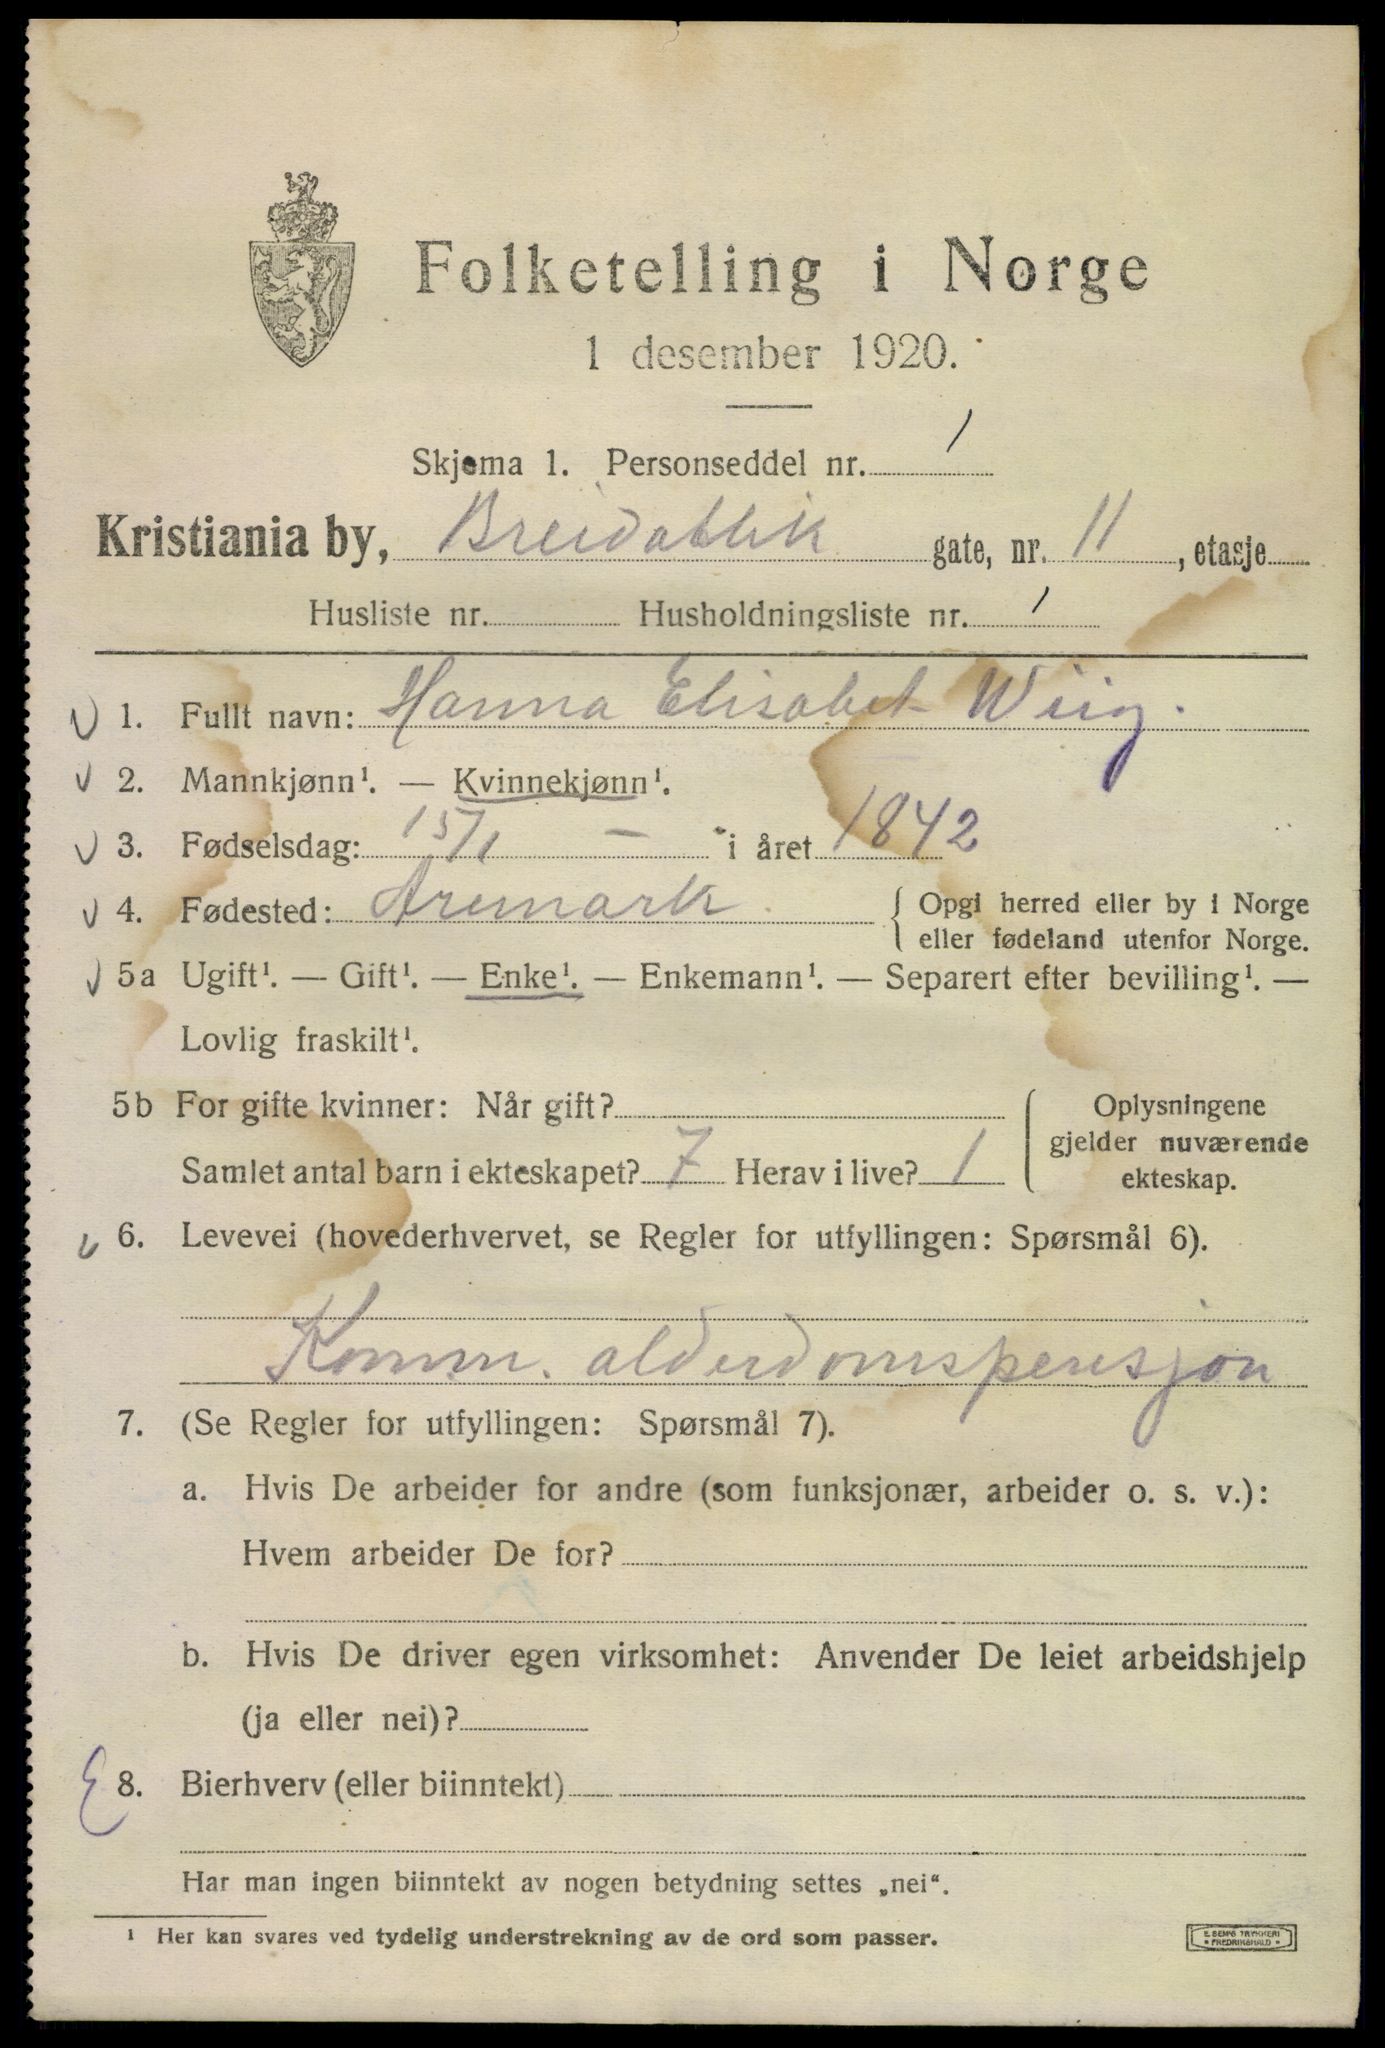 Folketelling i Norge
1 desember 1920.
Skjema 1. Personseddel nr. 1
Kristiania by, Breidablik gate, nr. 11, etasje
Husliste nr. Husholdningsliste nr. 1
1. Fullt navn: Hanna Elisabet Wiig.
2. Mannkjønn¹. — Kvinnekjønn¹.
3. Fødselsdag: 15/1 — i året 1842
4. Fødested: Aremark { Opgi herred eller by i Norge
eller fødeland utenfor Norge.
5a Ugift¹. — Gift¹. — Enke¹. — Enkemann¹. — Separert efter bevilling¹. —
Lovlig fraskilt¹.
5b For gifte kvinner: Når gift? { Oplysningene
gjelder nuværende
Samlet antal barn i ekteskapet? 7 Herav i live? 1 ekteskap.
6. Levevei (hovederhvervet, se Regler for utfyllingen: Spørsmål 6).
Komm. alderdomspensjon
7. (Se Regler for utfyllingen: Spørsmål 7).
a. Hvis De arbeider for andre (som funksjonær, arbeider o. s. v.):
Hvem arbeider De for?
b. Hvis De driver egen virksomhet: Anvender De leiet arbeidshjelp
(ja eller nei)?
8. Bierhverv (eller biinntekt)
Har man ingen biinntekt av nogen betydning settes „nei“.
¹ Her kan svares ved tydelig understrekning av de ord som passer.
E. SEMS TRYKKERI
FREDRIKSHALD